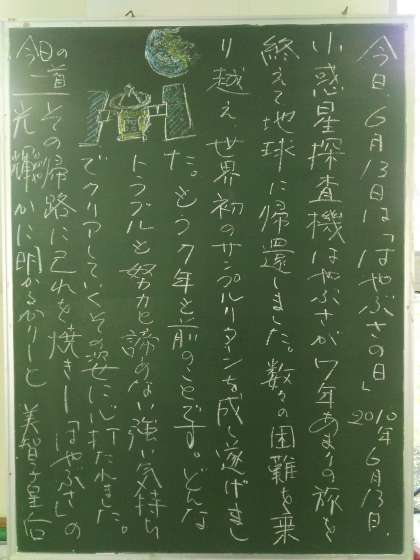 今日、6月13日は「はやぶさの日」2010年6月13日、
小惑星探査機はやぶさが7年あまりの旅を
終えて地球に帰還しました。数々の困難を乗
り越え世界初のサンプルリターンを成し遂げまし
た。もう7年も前のことです。どんな
トラブルも努力と諦めない強い気持ち
でクリアしていくその姿に心打たれました。
今日の一首
その帰路に己れを焼きし「はやぶさ」の
光輝かに明かるかりしと 美智子皇后